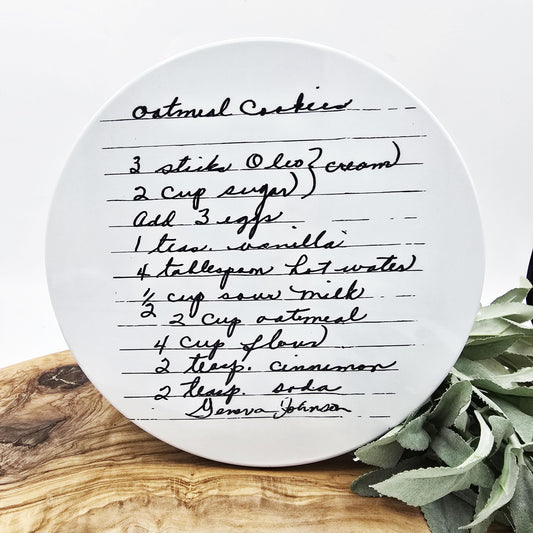 Oatmeal Cookies
3 sticks Oleo } cream)
2 cup sugar) )
add 3 eggs
1 teas. vanilla
4 tablespoon hot water
1/2 cup sour milk
2 cup oatmeal
4 cup flour
2 teasp. cinnimon
2 teasp. soda
Geneva Johnson